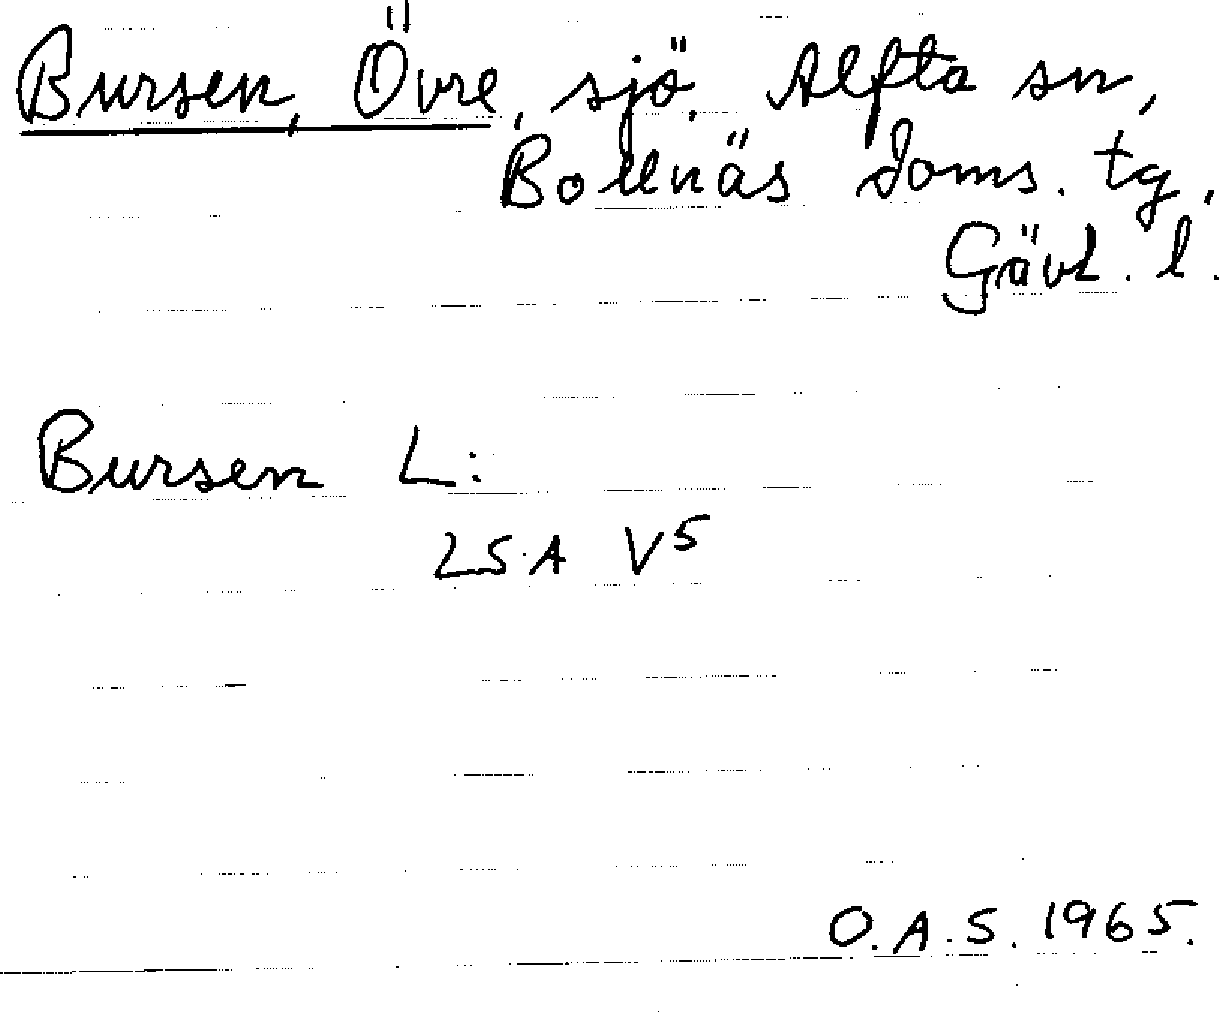 Bursen, Övre, sjö. Alfta sn,
Bollnäs doms. tg,
Gävl. l.
Bursen L:
LSA V5
O.A.S. 1965.